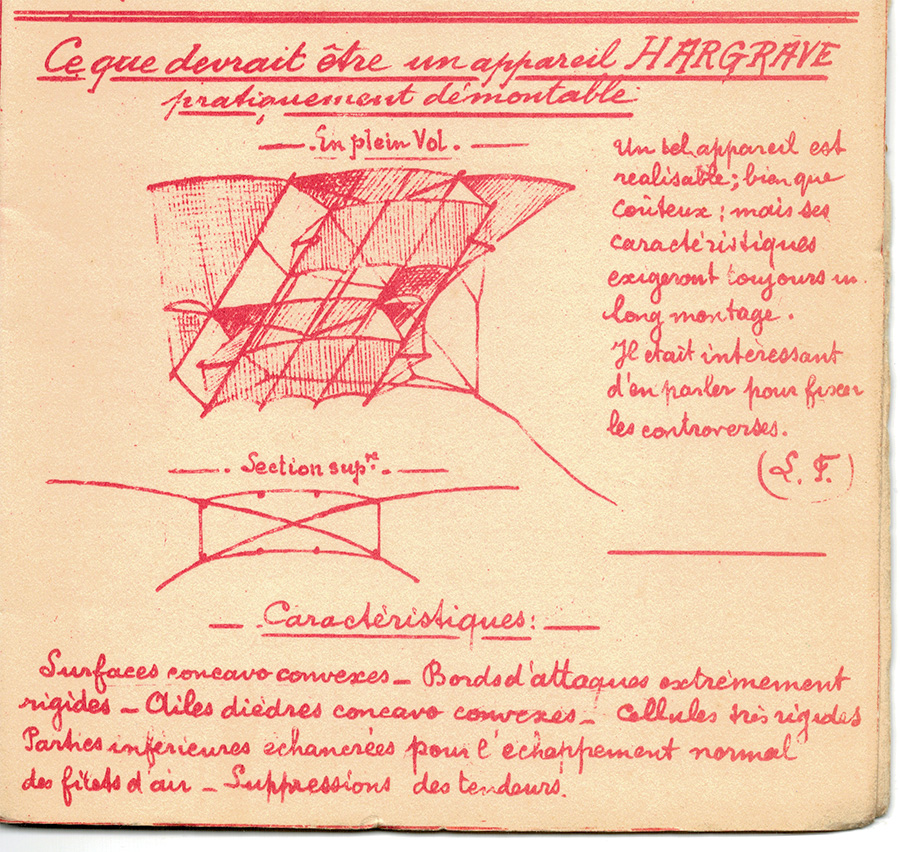 Ce que devrait être un appareil HARGRAVE
pratiquement démontable
En plein Vol.
Un tel appareil est
realisable; bien que
Coûteux; mais ses
caractéristiques
exigeront toujours un
long montage.
Il etait intèressant
d'en parler pour fixer
les controverses.
(L. F.)
Section supre.
Caractéristiques:
Surfaces concavo convexes – Bords d'attaques extrèmement
rigides – Ailes dièdres concavo convexes – Cellules très rigides
Parties inférieures echancrées pour l'echappement normal
des filets d'air – Suppressions des tendeurs.